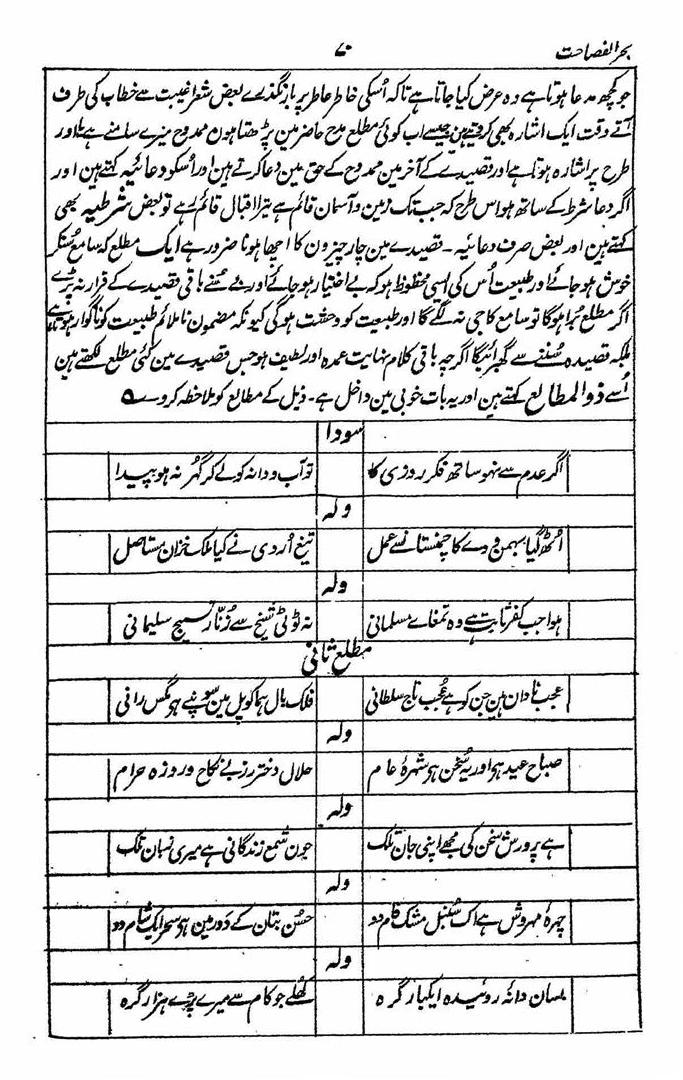 بحر الفصاحت
۷۰
جو کچھ مدعا ہوتا ہے وہ عرض کیا جاتا ہے تاکہ اُسکی خاطر عاطر پر بار نگذرے بعض شعرا غیبت سے خطاب کی طرف
آتے وقت ایک اشارہ بھی کردیتے ہین جیسے اب کوئی مطلع مدح حاضر مین پڑھتا ہون ممدوح میرے سامنے ہے اور
طرح پر اشارہ ہوتا ہے اور قصیدے کے آخر مین ممدوح کے حق مین دعا کرتے ہین اور اُسکو دعائیہ کہتے ہین اور
اگر دعا شرط کے ساتھ ہو اس طرح کہ جب تک زمین و آسمان قائم ہے تیرا اقبال قائم رہے تو بعض شرطیہ بھی
کہتے ہین اور بعض صرف دعائیہ - قصیدے مین چار چیزون کا اچھا ہونا ضرور ہے ایک مطلع کہ سامع سُنکر
خوش ہو جائے اور طبیعت اُس کی ایسی محظوظ ہو کہ بے اختیار ہو جائے اور بے سُنے باقی قصیدے کے قرار نہ پڑے
اگر مطلع بُرا ہوگا تو سامع کا جی نہ لگے گا اور طبیعت کو وحشت ہوگی کیونکہ مضمون ناملائم طبیعت کو ناگوار ہوتا ہے
بلکہ قصیدہ سُننے سے گھبرائیگا اگرچہ باقی کلام نہایت عمدہ اور لطیف ہو جس قصیدے مین کئی مطلع لکھتے ہین
اُسے ذوالمطالع کہتے ہین اور یہ بات خوبی مین داخل ہے - ذیل کے مطالع کو ملاحظہ کرو ے
سودا
اگر عدم سے نہو ساتھ فکر روزی کا تو آب و دانہ کو لے کر گہر نہ ہو پیدا
ولہ
اُٹھ گیا بہمن و دے کا چمنستان سے عمل تیغ اُردی نے کیا ملک خزان مستاصل
ولہ
ہوا جب کفر ثابت ہے وہ تمغاے مسلمانی نہ ٹوٹی شیخ سے زُنّار تسبیح سلیمانی
مطلع ثانی
عجب نادان ہین جن کو ہے عُجب تاج سلطانی فلک بال ہما کو پل مین سونپے ہے مگس رانی
ولہ
صباح عید ہو اور یہ سُخن ہو شہرۂ عام حلال دختر رز بے نکاح و روزہ حرام
ولہ
ہے پرورش سخن کی مجھے اپنی جان تلک جون شمع زندگانی ہے میری زبان تلک
ولہ
چہرۂ مہروش ہے اک سُنبل مشک فام دو حُسن بتان کے دَور مین ہے سحر ایک شام دو
ولہ
بسان دانۂ روئیدہ ایکبار گرہ کُھلے جو کام سے میرے پڑے ہزار گرہ